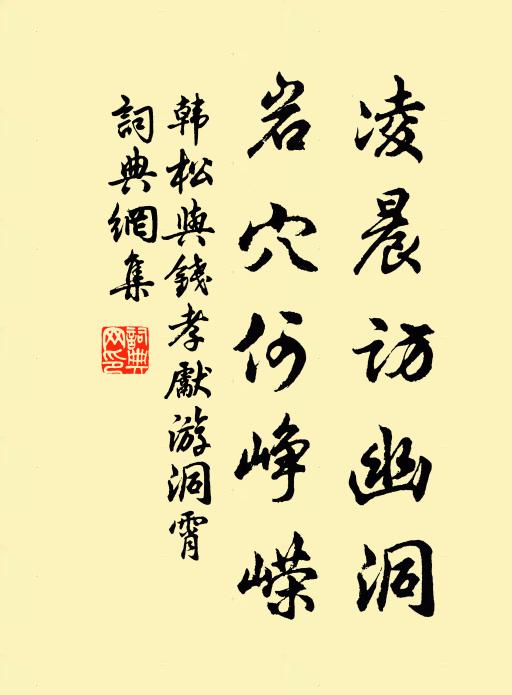 凌晨访幽洞
岩穴何峥嵘
韩松與錢孝獻游洞霄
詞典網集
詞典
网印